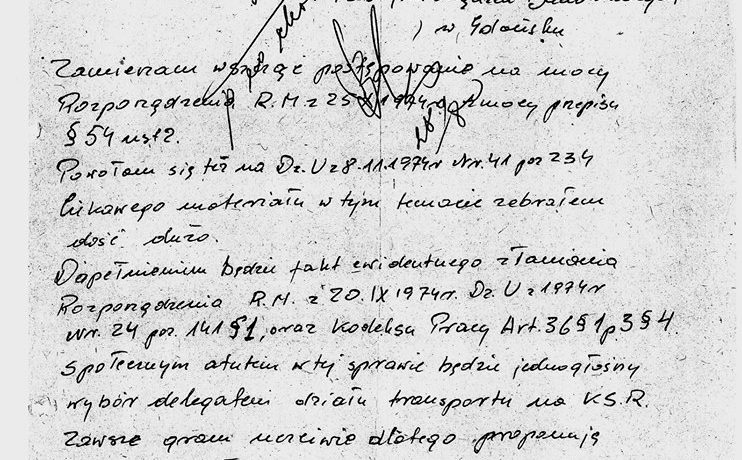 ) w Gdańsku
Zamierzam wszcząć postępowanie na mocy
Rozporządzenia R.M. z 25 X 1974r. z mocy przepisu
§ 54 ust 2.
Powołam się też na Dz.U z 8.11.1974r Nr.41 poz 234
Ciekawego materiału w tym temacie zebrałem
dość dużo.
Dopełnieniem będzie fakt ewidentnego złamania
Rozporządzenia R.M. z 20.IX 1974r. Dz.U z 1974r
Nr. 24 poz. 141 § 1, oraz Kodeksu Pracy Art. 36 § 1 p 3 § 4.
Społecznym atutem w tej sprawie będzie jednogłośny
wybór delegatem działu transportu na K.S.R.
Zawsze gram uczciwie dlatego proponuję